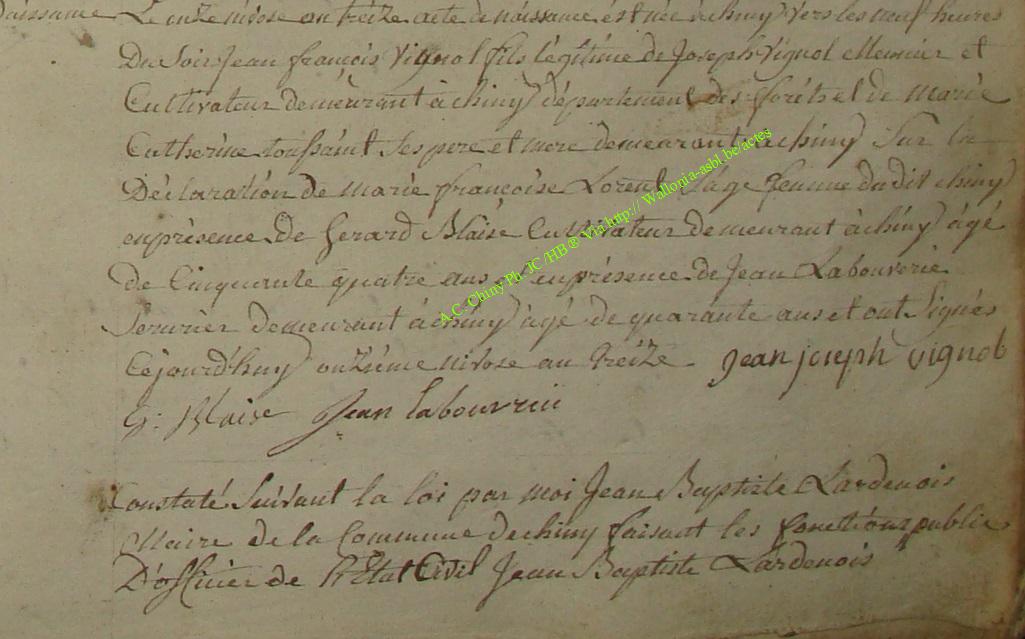 Naissance Le onze nivose an treize acte de naissance est née à chiny vers les neuf heures
Du Soir Jean françois Vignol fils légitime de Joseph Vignol Meunier et
Cultivateur demeurant à chiny département des forêts et de marie
Catherine toussaint Ses pere et mere demeurant à chiny Sur la
Déclaration de marie françoise Lorent Sage femme dudit chiny
en présence de Gerard Blaise Cultivateur demeurant à chiny âgé
de Cinquente quatre ans et en présence de Jean Labouverie
Serurier demeurant à chiny âgé de quarante ans et ont Signés
Cejourd'huy onzieme nivose an treize Jean joseph vignol
G: Blaise Jean labouverie
Constaté Suivant la loi par moi Jean Baptiste Lardenois
Maire de la Commune de chiny faisant les fonctions public
D'officier de l'Etat Civil Jean Baptiste Lardenois
A.C. Chiny Ph. JC/HB ® Via http:// Wallonia-asbl.be/actes